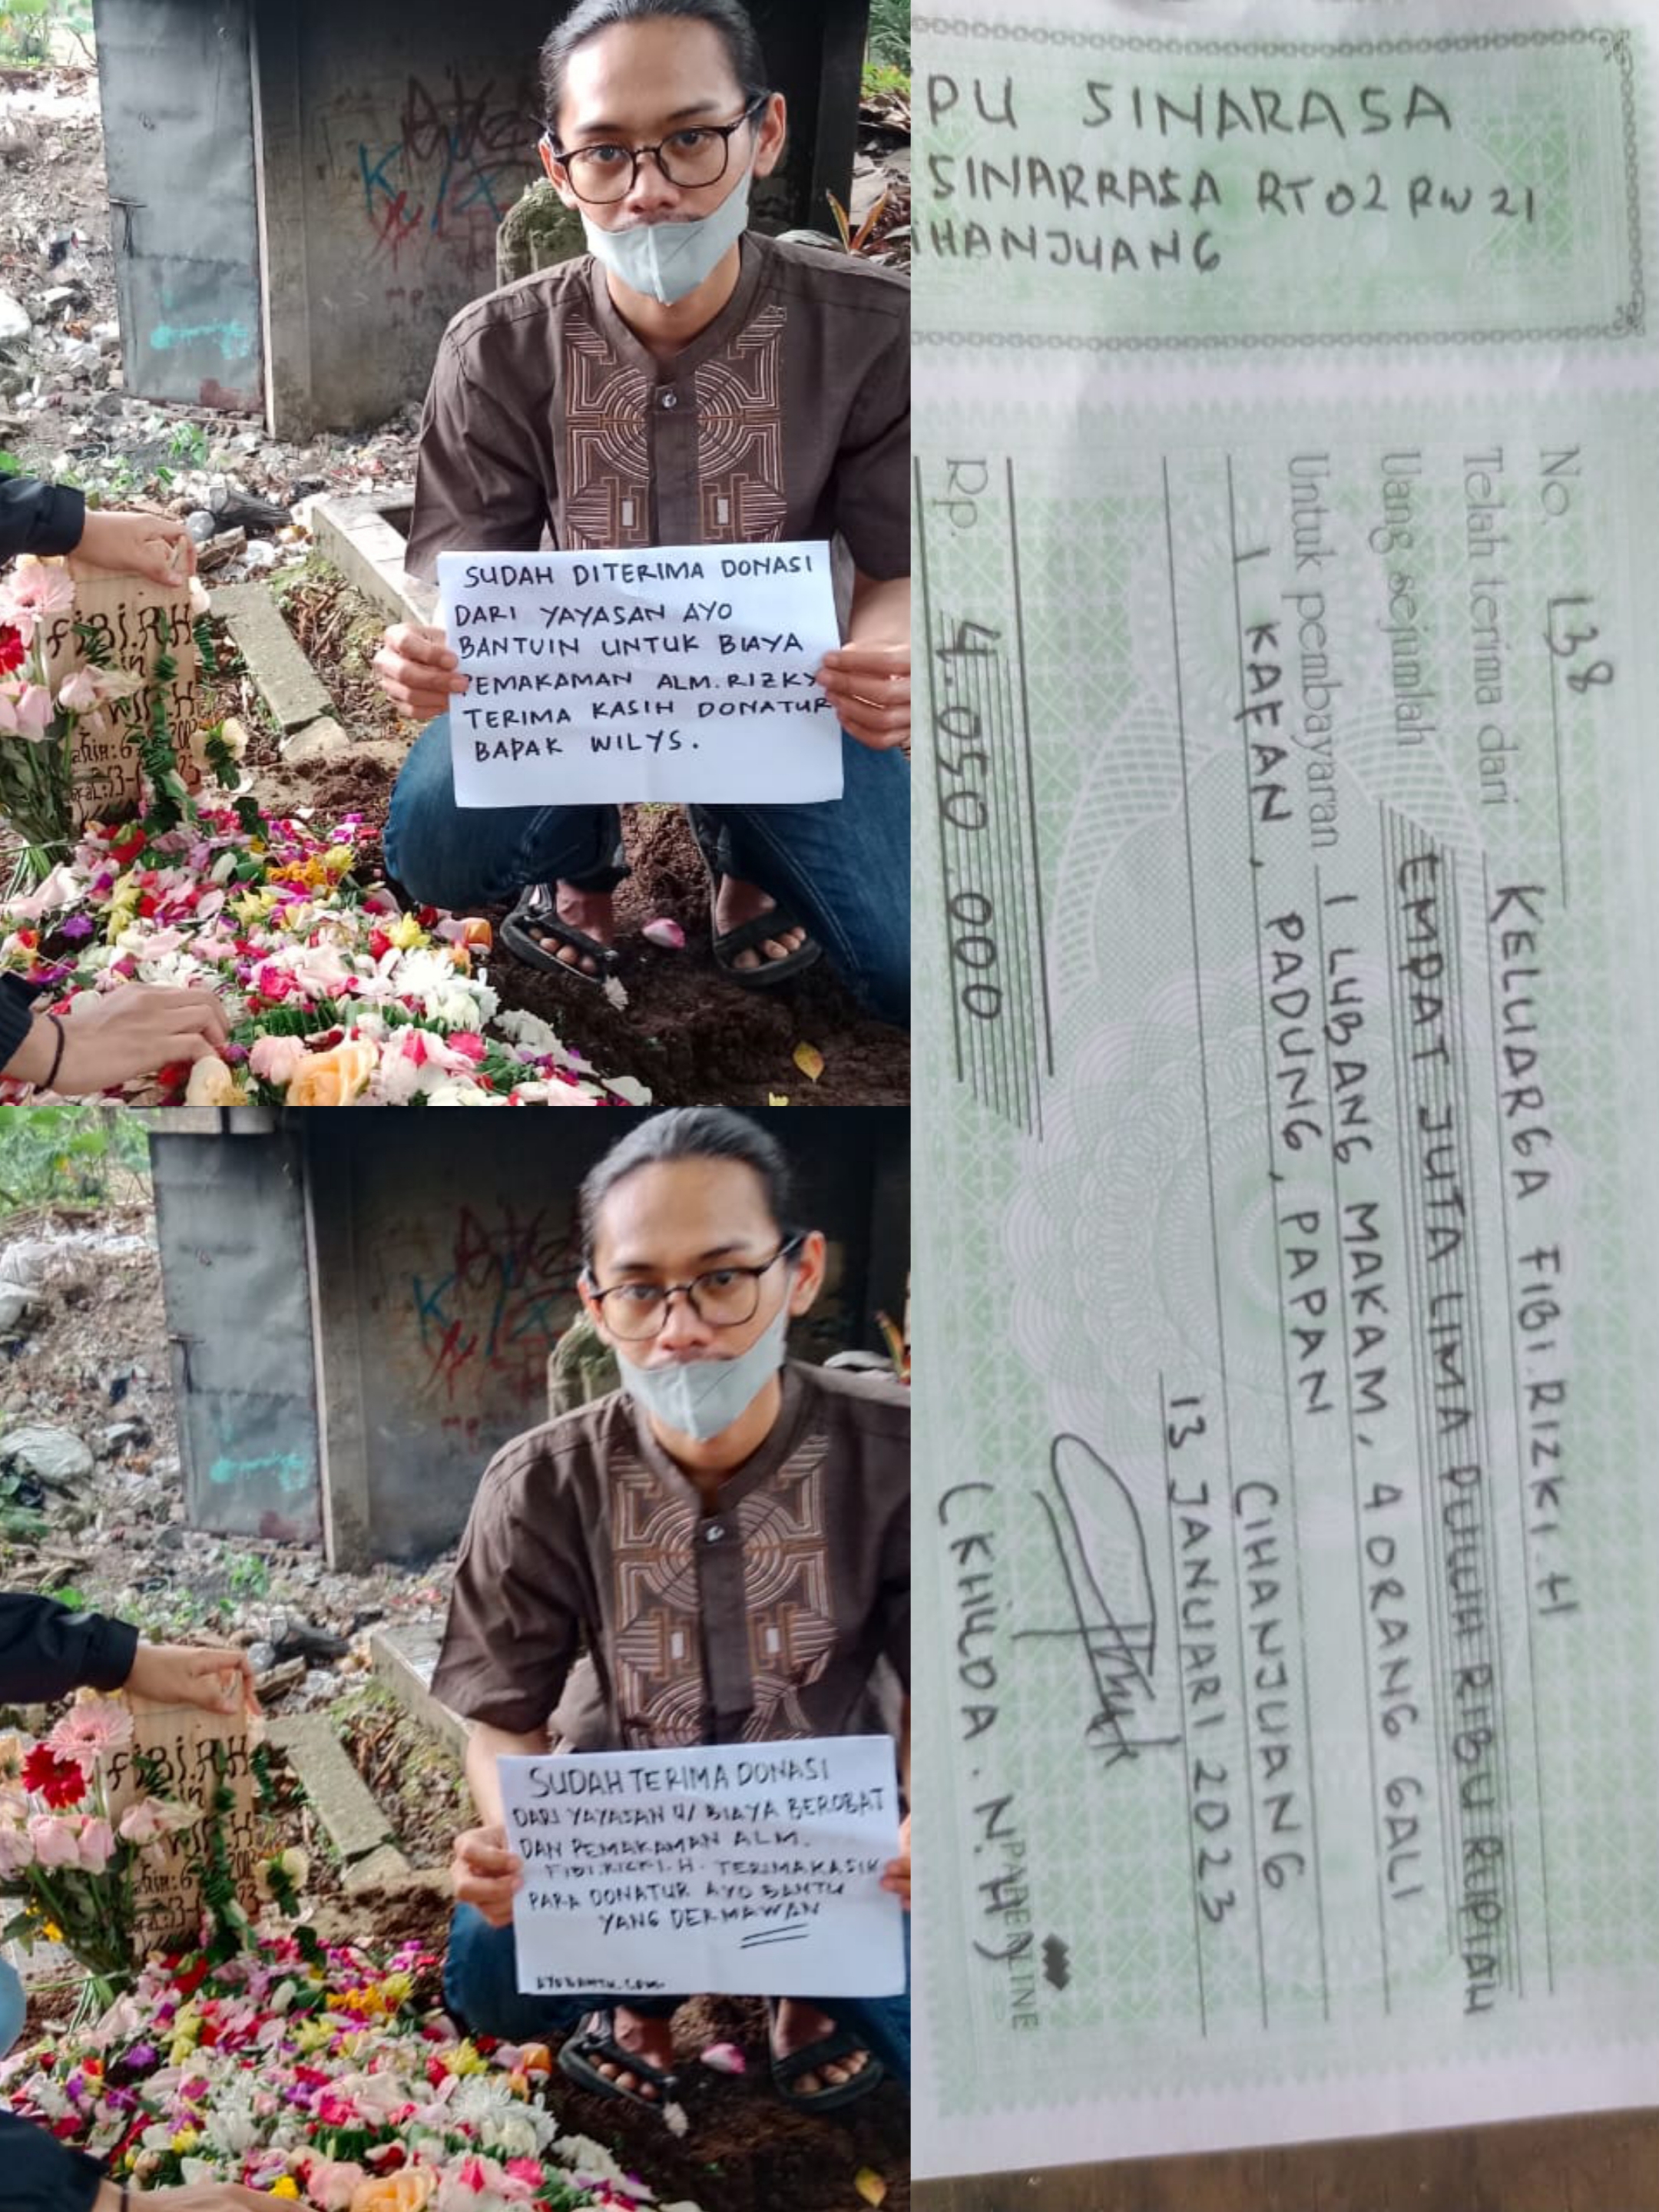 SUDAH DITERIMA DONASI
DARI YAYASAN AYO
BANTUIN UNTUK BIAYA
PEMAKAMAN ALM. RIZKY
TERIMA KASIH DONATUR
BAPAK WILYS.
FIBI.R.H
Bin
SUDAH TERIMA DONASI
DARI YAYASAN U/ BIAYA BEROBAT
DAN PEMAKAMAN ALM.
FIBI.RIZKI.H. TERIMAKASIH
PARA DONATUR AYO BANTU
YANG DERMAWAN
AYOBANTU.COM
FIBI.R.H
in
PU SINARASA
SINARRASA RT 02 RW 21
IHANJUANG
No. 138
Telah terima dari KELUARGA FIBI.RIZKI.H
Uang sejumlah EMPAT JUTA LIMA PULUH RIBU RUPIAH
Untuk pembayaran 1 LUBANG MAKAM, 4 ORANG GALI
1 KAFAN, PADUNG, PAPAN
CIHANJUANG
13 JANUARI 2023
Rp. 4.050.000
(KHILDA.N.H)
PAPERLINE